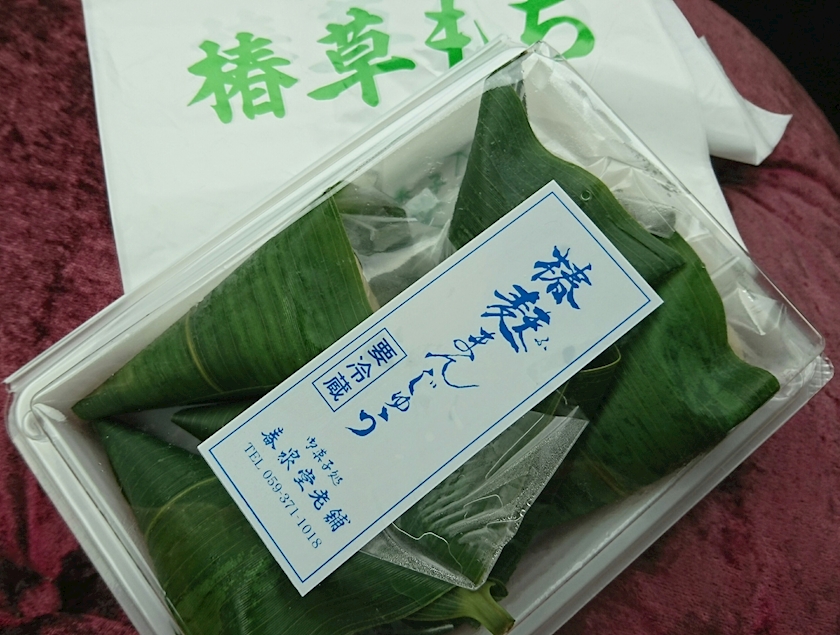 椿草もち
椿麩まんじゅう
ふ
要冷蔵
御菓子処
春泉堂老舗
TEL 059-371-1018